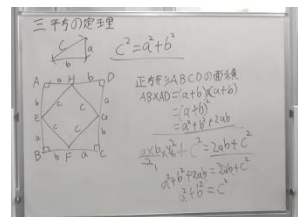 三平方の定理
c
a
b
c²=a²+b²
A a H b D
b
a
E
c
c
G
c
c
a
b
B b F a C
正方形ABCDの面積
AB×AD=(a+b)(a+b)
=(a+b)²
=a²+b²+2ab
+c²=2ab+c²
a²+b²+2ab=2ab+c²
a²+b²=c²